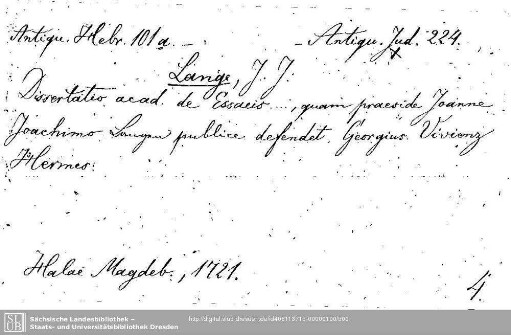 Antiqu. Hebr. 101a. – – Antiqu. Jud. 224.
Lange, J. J.
Dissertatio acad. de Essaeis ..., quam praeside Joanne
Joachimo Langen publice defendet. Georgius
Hermes.
Halae Magdeb., 1721.
4.
SLUB
Sächsische Landesbibliothek –
Staats- und Universitätsbibliothek Dresden